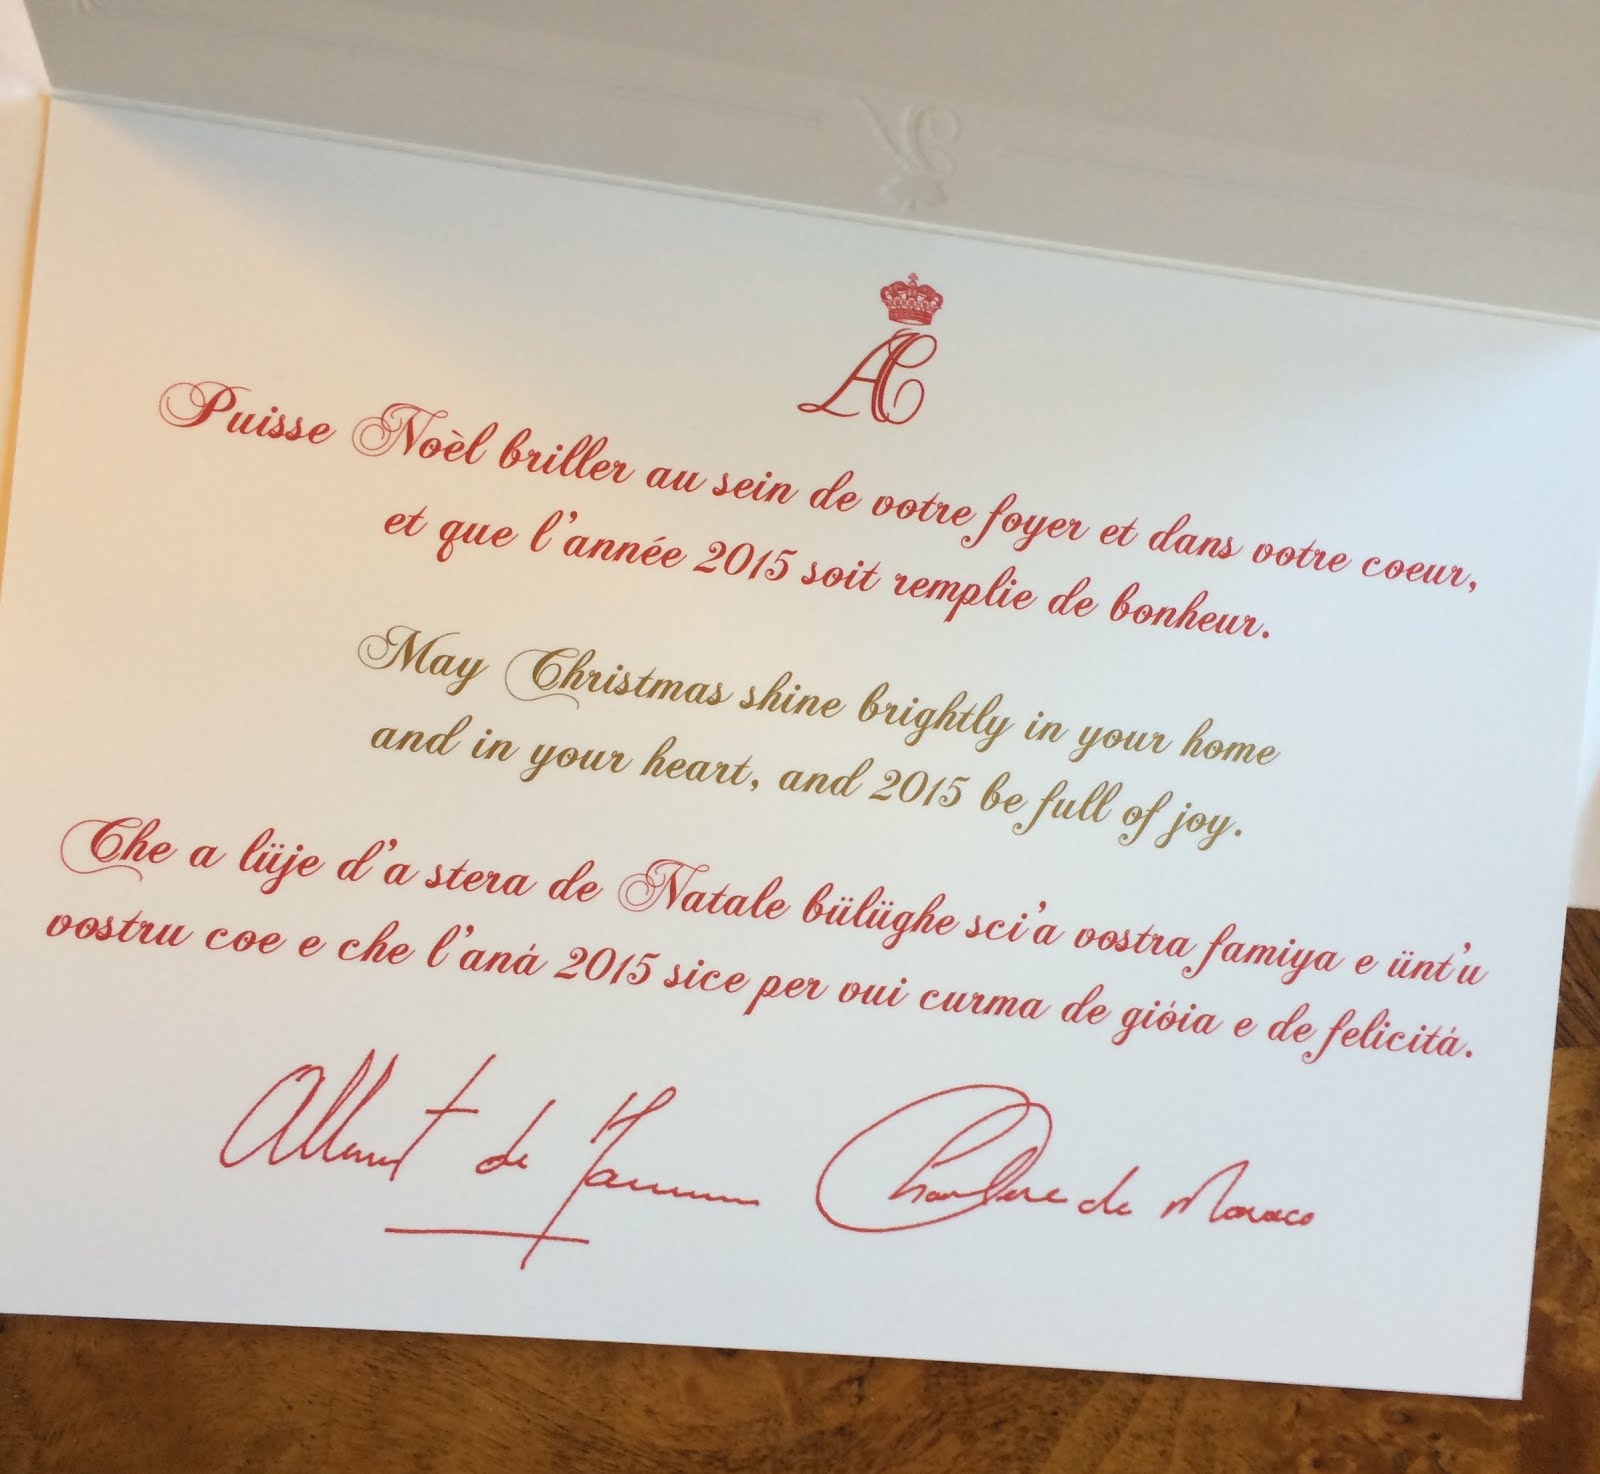 AC
Puisse Noèl briller au sein de votre foyer et dans votre coeur,
et que l'année 2015 soit remplie de bonheur.
May Christmas shine brightly in your home
and in your heart, and 2015 be full of joy.
Che a lüje d'a stera de Natale bülüghe sci'a vostra famiya e ünt'u
vostru coe e che l'aná 2015 sice per vui curma de gióia e de felicitá.
Albert de Monaco Charlene de Monaco